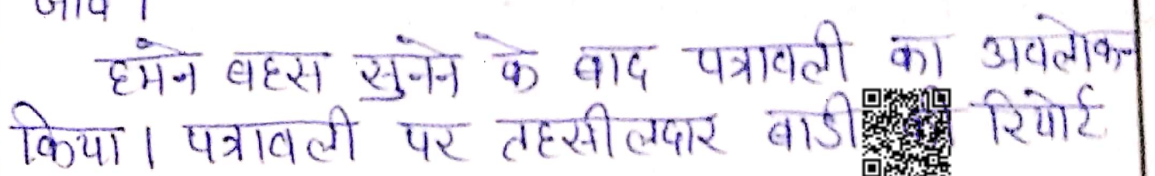 हमने बहस सुनने के बाद पत्रावली का अवलोकन
किया। पत्रावली पर तहसीलदार बाडी की रिपोर्ट